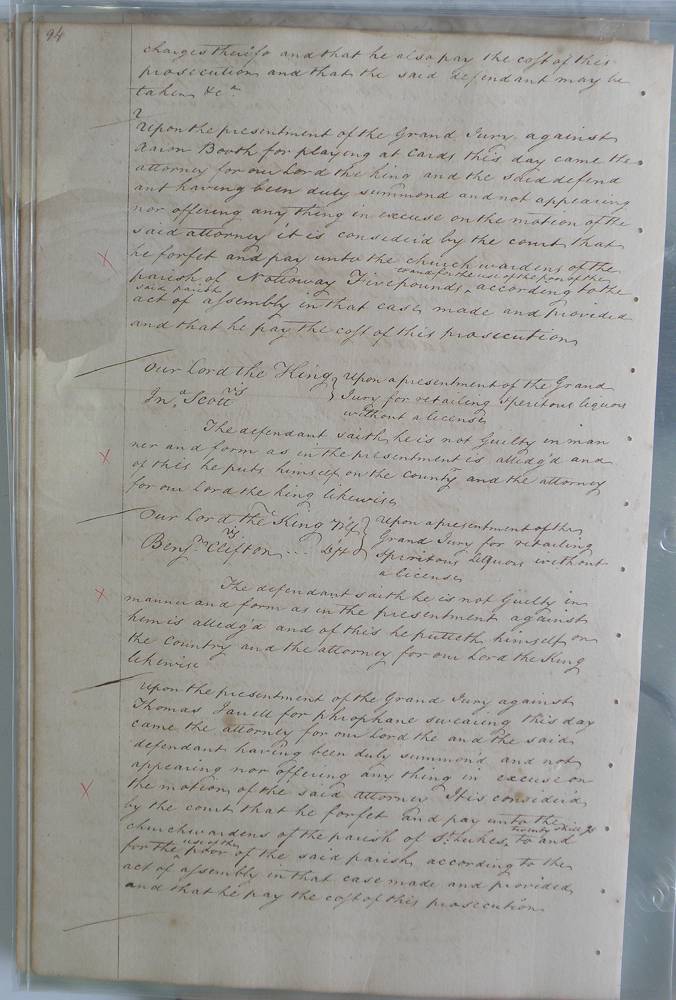 94
charges theirfo and that he also pay the cost of this
prosecution and that the said defendant may be
taken &c.
Upon the presentment of the Grand Jury against
Aaron Booth for playing at Cards this day came the
attorney for our Lord the king and the said defend
ant having been duly summond and not appearing
nor offering any thing in excuse on the motion of the
said attorney it is consider'd by the court that
he forfet and pay unto the church wardens of the
to and for the use of the poor of the
parish of Nottoway Five pounds ^ according to the
said parish
act of assembly in that case made and provided
and that he pay the cost of this prosecution
Our Lord the King } Upon a presentment of the Grand
vs
Jna. Scott } Jury for retailing speritous liquors
without a license
The defendant saith he is not Guilty in man
ner and form as in the presentment is alledg'd and
of this he puts himself on the County and the attorney
for our Lord the king likewise
Our Lord the King Plf } Upon a presentment of the
vs
Grand Jury for retailing
Benjn. Clifton ... Deft } Spiritous Liquors without
a license
The defendant saith he is not Guilty in
manner and form as in the presentment against
him is alledg'd and of this he putteth himself on
the Country and the attorney for our Lord the King
likewise
Upon the presentment of the Grand Jury against
Thomas Jarell for phrophane swearing this day
came the attorney for our Lord the and the said
defendant having been duly summon'd and not
appearing nor offering any thing in excuse on
the motion of the said attorney It is consider'd
by the court that he forfet and pay unto the
twenty shills
churchwardens of the parish of St. Lukes, to and
use of the
for the ^ poor of the said parish according to the
act of assembly in that case made and provided
and that he pay the cost of this prosecution